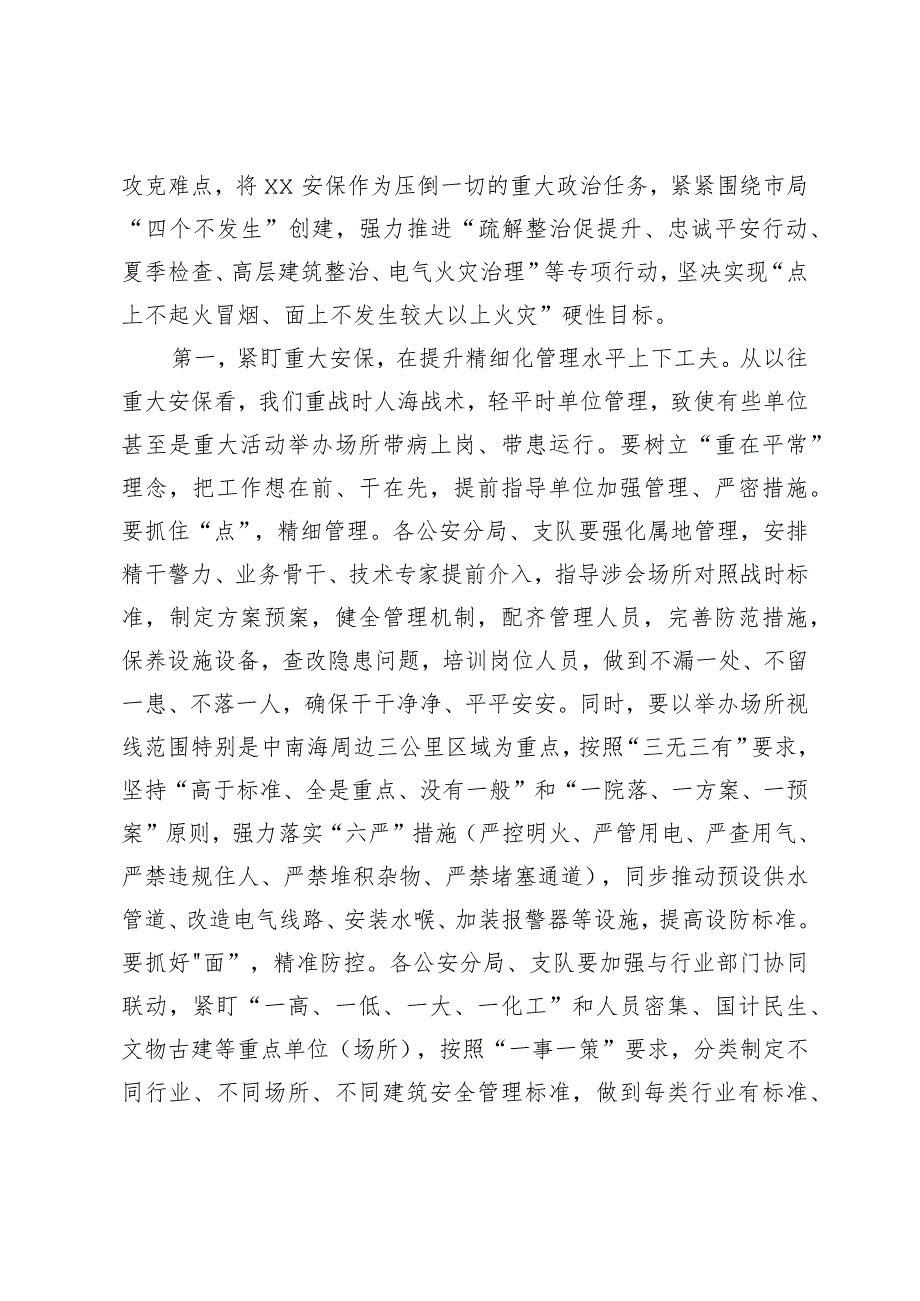 攻克难点，将 XX 安保作为压倒一切的重大政治任务，紧紧围绕市局
“四个不发生”创建，强力推进“疏解整治促提升、忠诚平安行动、
夏季检查、高层建筑整治、电气火灾治理”等专项行动，坚决实现“点
上不起火冒烟、面上不发生较大以上火灾”硬性目标。
第一，紧盯重大安保，在提升精细化管理水平上下工夫。从以往
重大安保看，我们重战时人海战术，轻平时单位管理，致使有些单位
甚至是重大活动举办场所带病上岗、带患运行。要树立“重在平常”
理念，把工作想在前、干在先，提前指导单位加强管理、严密措施。
要抓住“点”，精细管理。各公安分局、支队要强化属地管理，安排
精干警力、业务骨干、技术专家提前介入，指导涉会场所对照战时标
准，制定方案预案，健全管理机制，配齐管理人员，完善防范措施，
保养设施设备，查改隐患问题，培训岗位人员，做到不漏一处、不留
一患、不落一人，确保干干净净、平平安安。同时，要以举办场所视
线范围特别是中南海周边三公里区域为重点，按照“三无三有”要求，
坚持“高于标准、全是重点、没有一般”和“一院落、一方案、一预
案”原则，强力落实“六严”措施（严控明火、严管用电、严查用气、
严禁违规住人、严禁堆积杂物、严禁堵塞通道），同步推动预设供水
管道、改造电气线路、安装水喉、加装报警器等设施，提高设防标准。
要抓好"面”，精准防控。各公安分局、支队要加强与行业部门协同
联动，紧盯“一高、一低、一大、一化工”和人员密集、国计民生、
文物古建等重点单位（场所），按照“一事一策”要求，分类制定不
同行业、不同场所、不同建筑安全管理标准，做到每类行业有标准、